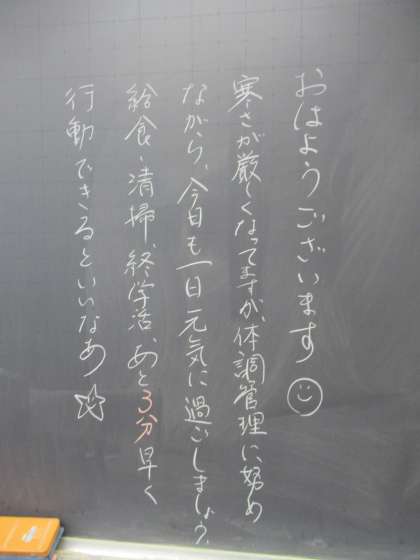 おはようございます
寒さが厳しくなってますが、体調管理に、努め
ながら、今日も一日元気に過ごしましょう。
給食、清掃、終学活、あと3分早く
行動できるといいなあ